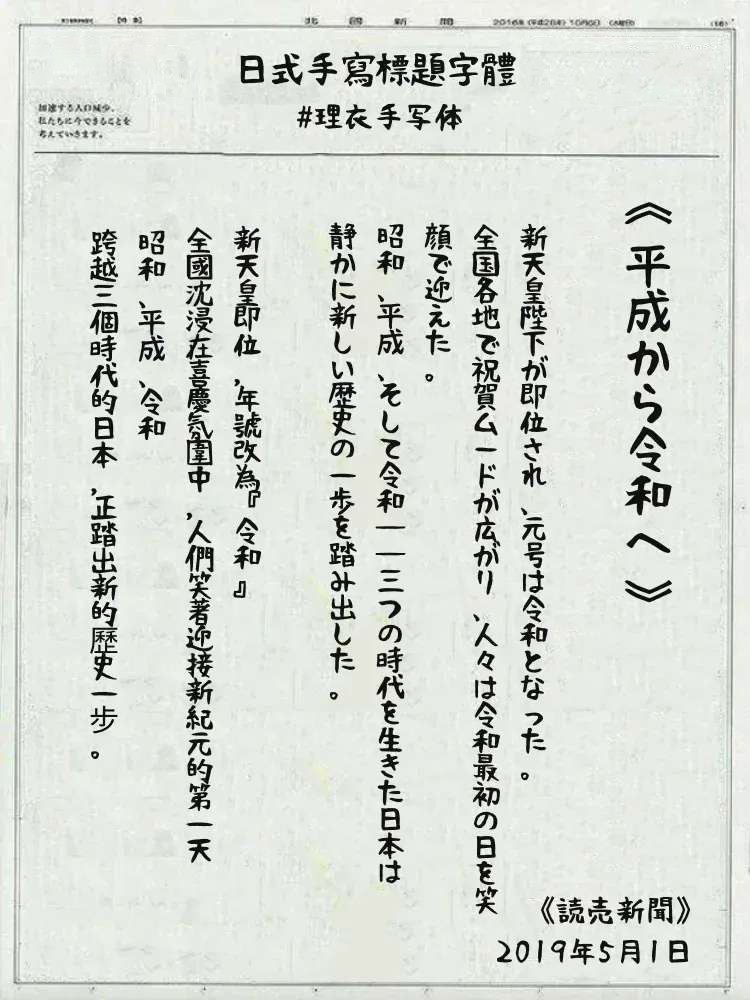 北國新聞
2016年(平成28年)10月6日(木曜日)
日式手寫標題字體
#理衣手写体
加速する人口減少、
私たちに今できることを
考えていきます。
《平成から令和へ》
新天皇陛下が即位され、元号は令和となった。
全国各地で祝賀ムードが広がり、人々は令和最初の日を笑
顔で迎えた。
昭和、平成、そして令和——三つの時代を生きた日本は
静かに新しい歴史の一歩を踏み出した。
新天皇即位,年號改為『令和』
全國沈浸在喜慶氛圍中,人們笑著迎接新紀元的第一天
昭和、平成、令和
跨越三個時代的日本,正踏出新的歷史一步。
《読売新聞》
2019年5月1日